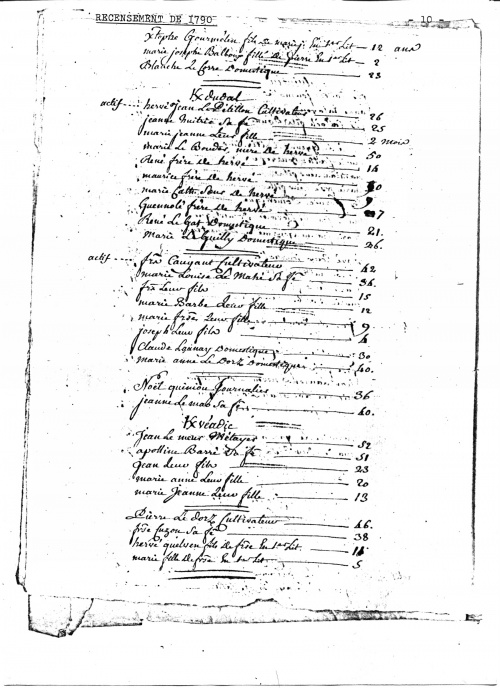 RECENSEMENT DE 1790 - 10 -
Xtophe Gourmelen fils de marie j. En 1er Lit 12 ans
marie josephe Balbous fille de pierre En 1er Lit 2
Blanche Le Corre Domestique 23
actif hervé jean Le Pétillon Cultivateur 26
jeanne mitrès sa fe 25
marie jeanne Leur fille 2 mois
marie Le Bourdes, mère de hervé 50
René frère de hervé 14
maurice frère de hervé
marie Cath. Sœur de hervé 9
Guennolé frère de hervé 7
René Le Gat Domestique 21
Marie Le quilly Domestique 26
actif frs Caugant Cultivateur 42
marie Louise Le Mahé sa fe 36
frs Leur fils 15
marie Barbe Leur fille 12
marie frse Leur fille 9
joseph Leur fils 4
Claude Launay Domestique 30
marie anne Le Dorz Domestique 40
Noël quiniou journalier 36
jeanne Le mao sa fe 40
Jean Le meur Métayer 52
apolline Barré sa fe 51
Jean Leur fils 23
marie anne Leur fille 20
marie Jeanne Leur fille 13
Pierre Le Dorz Cultivateur 46
frse suzon sa fe 38
hervé quelven fils de frse En 1er Lit 14
marie fille de frse En 1er Lit 5